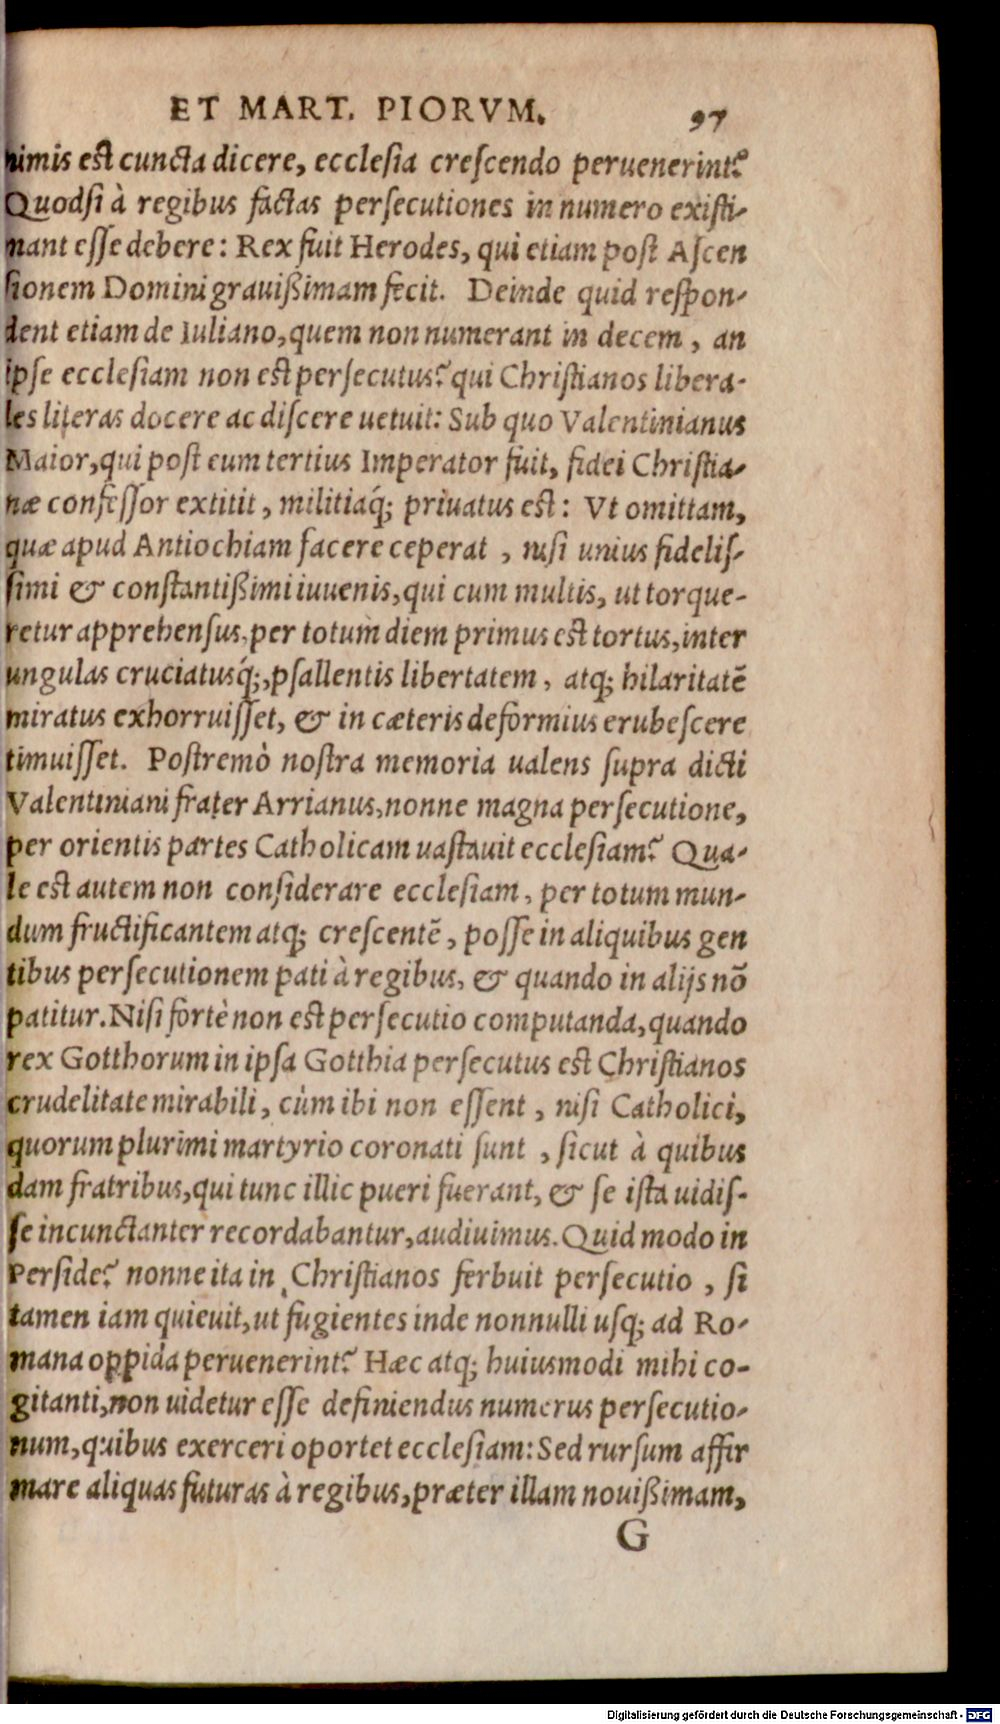 ET MART. PIORVM. 97
nimis est cuncta dicere, ecclesia crescendo peruenerint?
Quodsi à regibus factas persecutiones in numero existi-
mant esse debere: Rex fuit Herodes, qui etiam post Ascen
sionem Domini grauißimam fecit. Deinde quid respon-
dent etiam de Iuliano, quem non numerant in decem, an
ipse ecclesiam non est persecutus? qui Christianos libera-
les literas docere ac discere uetuit: Sub quo Valentinianus
Maior, qui post eum tertius Imperator fuit, fidei Christia-
næ confessor extitit, militiaq́; priuatus est: Vt omittam,
quæ apud Antiochiam facere ceperat, nisi unius fidelis-
simi & constantißimi iuuenis, qui cum multis, ut torque-
retur apprehensus, per totum diem primus est tortus, inter
ungulas cruciatusq́;, psallentis libertatem, atq; hilaritatē
miratus exhorruisset, & in cæteris deformius erubescere
timuisset. Postremò nostra memoria ualens supra dicti
Valentiniani frater Arrianus, nonne magna persecutione,
per orientis partes Catholicam uastauit ecclesiam? Qua-
le est autem non considerare ecclesiam, per totum mun-
dum fructificantem atq; crescentē, posse in aliquibus gen
tibus persecutionem pati à regibus, & quando in alijs nō
patitur. Nisi fortè non est persecutio computanda, quando
rex Gotthorum in ipsa Gotthia persecutus est Christianos
crudelitate mirabili, cùm ibi non essent, nisi Catholici,
quorum plurimi martyrio coronati sunt, sicut à quibus
dam fratribus, qui tunc illic pueri fuerant, & se ista uidis-
se incunctanter recordabantur, audiuimus. Quid modo in
Perside? nonne ita in Christianos ferbuit persecutio, si
tamen iam quieuit, ut fugientes inde nonnulli usq; ad Ro-
mana oppida peruenerint? Hæc atq; huiusmodi mihi co-
gitanti, non uidetur esse definiendus numerus persecutio-
num, quibus exerceri oportet ecclesiam: Sed rursum affir
mare aliquas futuras à regibus, præter illam nouißimam,
G
Digitalisierung gefördert durch die Deutsche Forschungsgemeinschaft - DFG